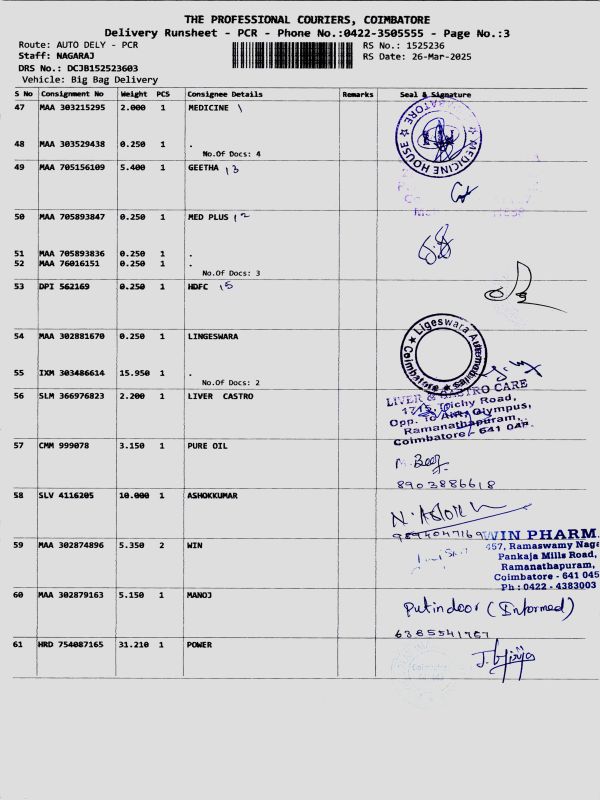 THE PROFESSIONAL COURIERS, COIMBATORE
Delivery Runsheet - PCR - Phone No.:0422-3505555 - Page No.:3
Route: AUTO DELY - PCR
RS No.: 1525236
Staff: NAGARAJ
RS Date: 26-Mar-2025
DRS No.: DCJB152523603
Vehicle: Big Bag Delivery
S No Consignment No Weight PCS Consignee Details Remarks Seal & Signature
47 MAA 303215295 2.000 1 MEDICINE
MEDICINE HOUSE
48 MAA 303529438 0.250 1 .
No.Of Docs: 4
49 MAA 705156109 5.400 1 GEETHA 13
50 MAA 705893847 0.250 1 MED PLUS 12
51 MAA 705893836 0.250 1 .
52 MAA 76016151 0.250 1 .
No.Of Docs: 3
53 DPI 562169 0.250 1 HDFC 15
54 MAA 302881670 0.250 1 LINGESWARA
Ligeswara
Coimbatore
55 IXM 303486614 15.950 1 .
No.Of Docs: 2
56 SLM 366976823 2.200 1 LIVER CASTRO
LIVER & GASTRO CARE
Trichy Road,
Opp. To Olympus,
Ramanathapuram,
Coimbatore - 641
57 CMM 999078 3.150 1 PURE OIL
8903886618
58 SLV 4116205 10.000 1 ASHOKKUMAR
N. ASHOK
9894047169
59 MAA 302874896 5.350 2 WIN
WIN PHARM
457, Ramaswamy Nage
Pankaja Mills Road,
Ramanathapuram,
Coimbatore - 641 045
Ph : 0422 - 4383003
60 MAA 302879163 5.150 1 MANOJ
Put indoor (Informed)
6385541767
61 HRD 754087165 31.210 1 POWER